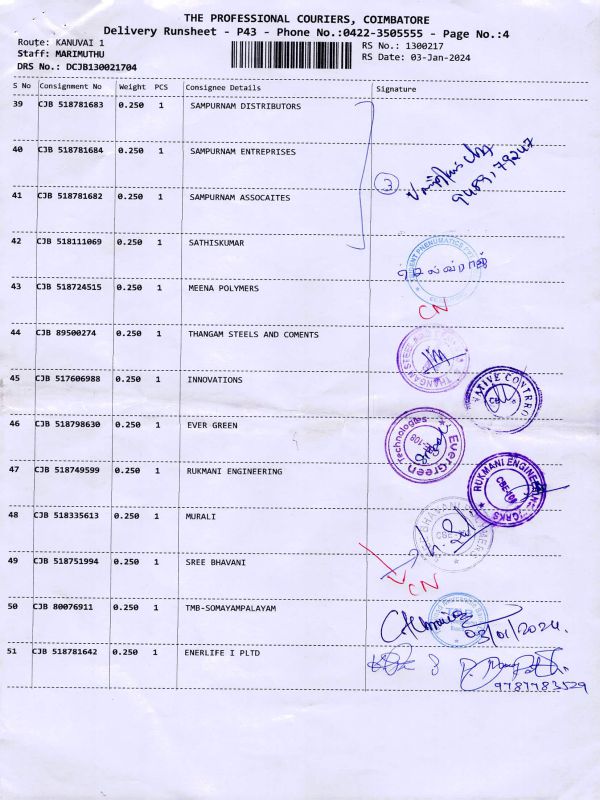 THE PROFESSIONAL COURIERS, COIMBATORE
Delivery Runsheet - P43 - Phone No.:0422-3505555 - Page No.:4
Route: KANUVAI 1
RS No.: 1300217
Staff: MARIMUTHU
RS Date: 03-Jan-2024
DRS No.: DCJB130021704
S No Consignment No Weight PCS Consignee Details Signature
39 CJB 518781683 0.250 1 SAMPURNAM DISTRIBUTORS
40 CJB 518781684 0.250 1 SAMPURNAM ENTREPRISES
3
41 CJB 518781682 0.250 1 SAMPURNAM ASSOCAITES
42 CJB 518111069 0.250 1 SATHISKUMAR
43 CJB 518724515 0.250 1 MEENA POLYMERS
CN
44 CJB 89500274 0.250 1 THANGAM STEELS AND COMENTS
THANGAM STEEL
45 CJB 517606988 0.250 1 INNOVATIONS
46 CJB 518798630 0.250 1 EVER GREEN
EverGreen Technologies
47 CJB 518749599 0.250 1 RUKMANI ENGINEERING
RUKMANI ENGINEERING WORKS
48 CJB 518335613 0.250 1 MURALI
49 CJB 518751994 0.250 1 SREE BHAVANI
CN
50 CJB 80076911 0.250 1 TMB-SOMAYAMPALAYAM
03/01/2024.
51 CJB 518781642 0.250 1 ENERLIFE I PLTD
9787783529